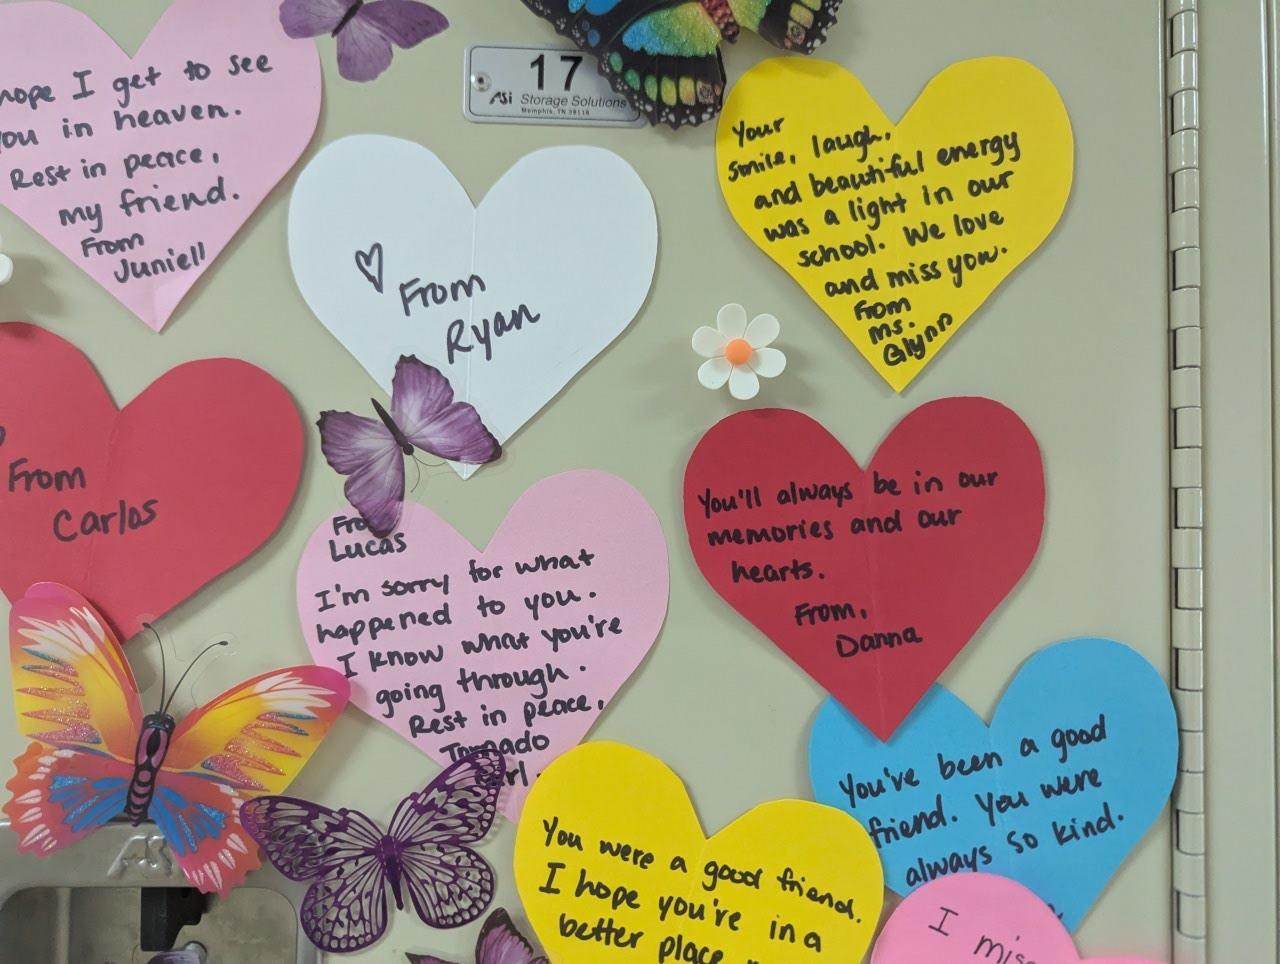 hope I get to see
you in heaven.
Rest in peace,
my friend.
From
Juniell
17
ASi Storage Solutions
Memphis, TN 38118
Your
smile, laugh,
and beautiful energy
was a light in our
school. We love
and miss you.
From
Ms.
Glynn
From
Ryan
From
Carlos
From
Lucas
I'm sorry for what
happened to you.
I know what you're
going through.
Rest in peace,
Tornado
You'll always be in our
memories and our
hearts.
From,
Danna
You've been a good
friend. You were
always so kind.
You were a good friend.
I hope you're in a
better place
I miss